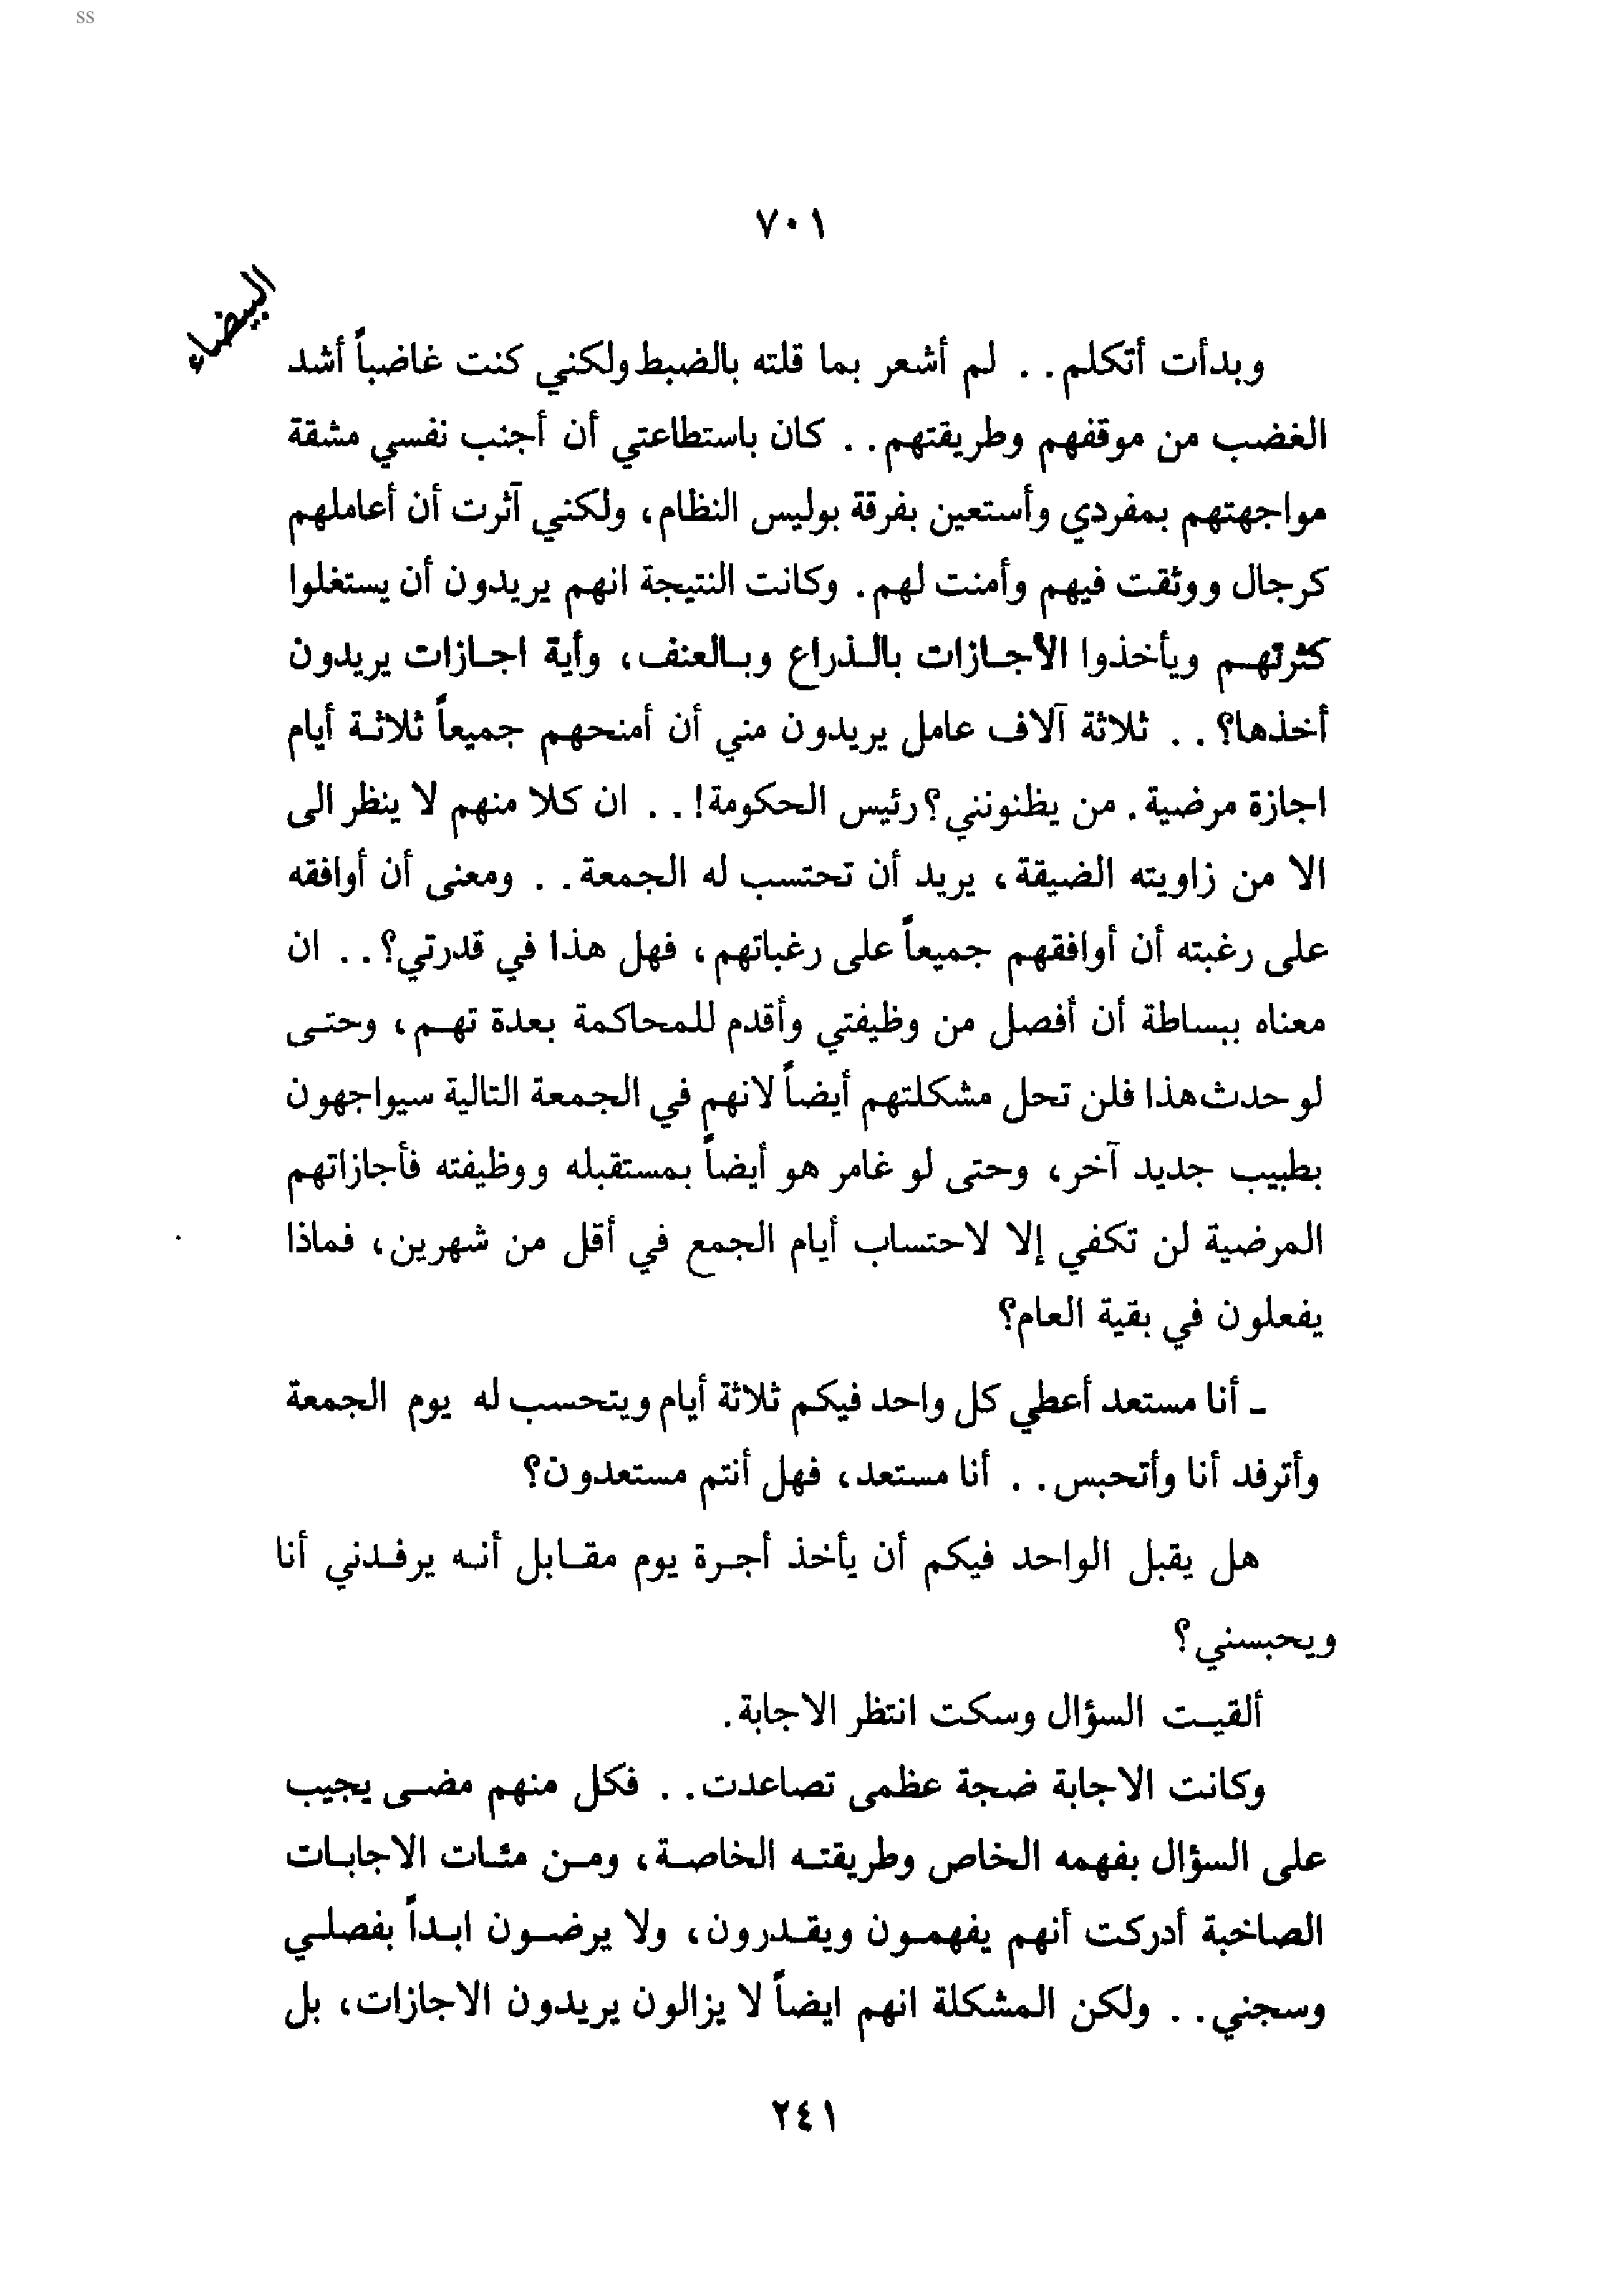 ss
٧٠١
البيضاء
وبدأت أتكلم.. لم أشعر بما قلته بالضبط ولكني كنت غاضباً أشد
الغضب من موقفهم وطريقتهم.. كان باستطاعتي أن أجنب نفسي مشقة
مواجهتهم بمفردي وأستعين بفرقة بوليس النظام، ولكني آثرت أن أعاملهم
كرجال ووثقت فيهم وأمنت لهم. وكانت النتيجة انهم يريدون أن يستغلوا
كثرتهم ويأخذوا الأجازات بالذراع وبالعنف، وأية اجازات يريدون
أخذها؟.. ثلاثة آلاف عامل يريدون مني أن أمنحهم جميعاً ثلاثة أيام
اجازة مرضية. من يظنونني؟ رئيس الحكومة!.. ان كلا منهم لا ينظر الى
الا من زاويته الضيقة، يريد أن تحتسب له الجمعة.. ومعنى أن أوافقه
على رغبته أن أوافقهم جميعاً على رغباتهم، فهل هذا في قدرتي؟.. ان
معناه ببساطة أن أفصل من وظيفتي وأقدم للمحاكمة بعدة تهم، وحتى
لو حدث هذا فلن تحل مشكلتهم أيضاً لانهم في الجمعة التالية سيواجهون
بطبيب جديد آخر، وحتى لو غامر هو أيضاً بمستقبله ووظيفته فأجازاتهم
المرضية لن تكفي إلا لاحتساب أيام الجمع في أقل من شهرين، فماذا
يفعلون في بقية العام؟
ـ أنا مستعد أعطي كل واحد فيكم ثلاثة أيام ويتحسب له يوم الجمعة
وأترفد أنا وأتحبس.. أنا مستعد، فهل أنتم مستعدون؟
هل يقبل الواحد فيكم أن يأخذ أجرة يوم مقابل أنه يرفدني أنا
ويحبسني؟
ألقيت السؤال وسكت انتظر الاجابة.
وكانت الاجابة ضجة عظمى تصاعدت.. فكل منهم مضى يجيب
على السؤال بفهمه الخاص وطريقته الخاصة، ومن مئات الاجابات
الصاخبة أدركت أنهم يفهمون ويقدرون، ولا يرضون ابداً بفصلي
وسجني.. ولكن المشكلة انهم ايضاً لا يزالون يريدون الاجازات، بل
٢٤١